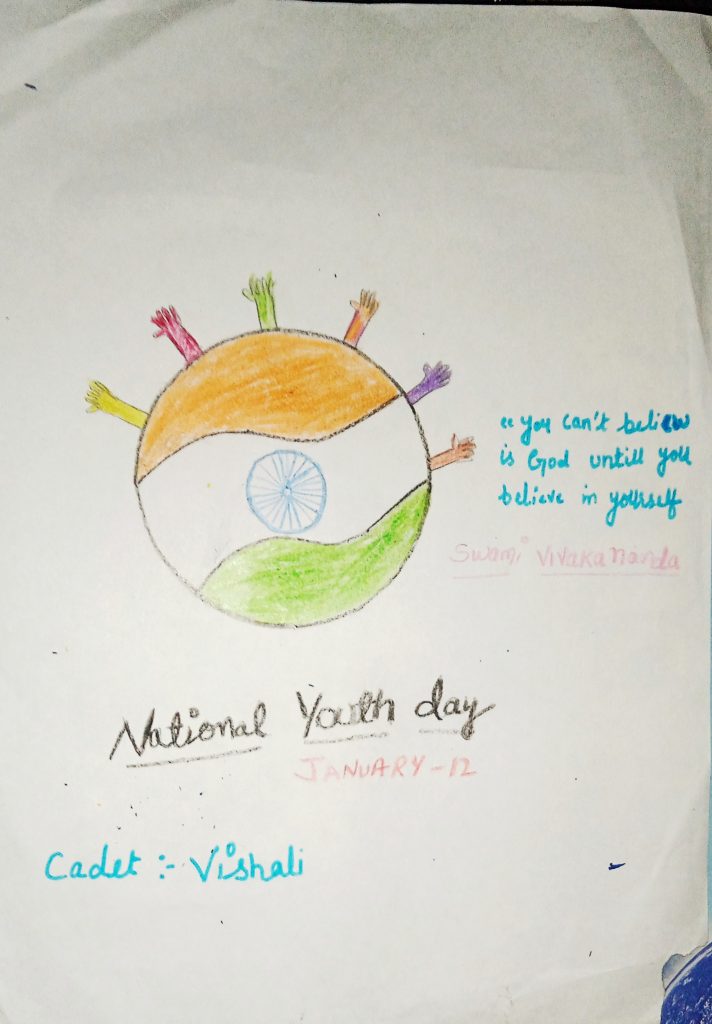 “ You can't believ
is God untill you
believe in yourself
Swami Vivakananda
National Youth day
JANUARY - 12
Cadet :- Vishali